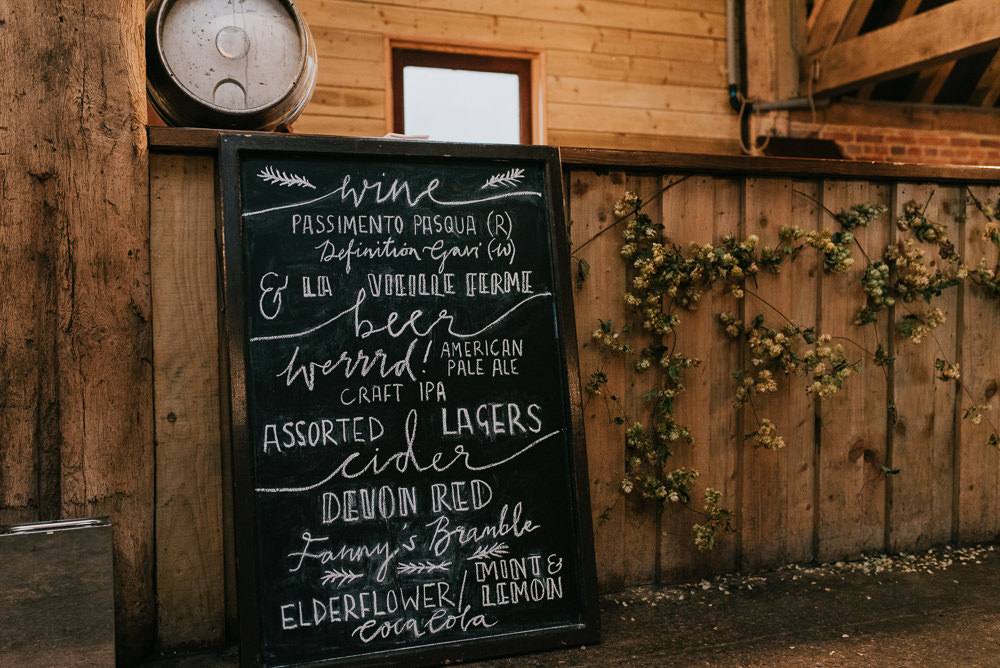 wine
PASSIMENTO PASQUA (R)
Definition Gavi (W)
& LA VIEILLE FERME
beer
Werrrd! AMERICAN PALE ALE
CRAFT IPA
ASSORTED LAGERS
cider
DEVON RED
Fanny's Bramble
ELDERFLOWER/ MINT & LEMON
Coca Cola